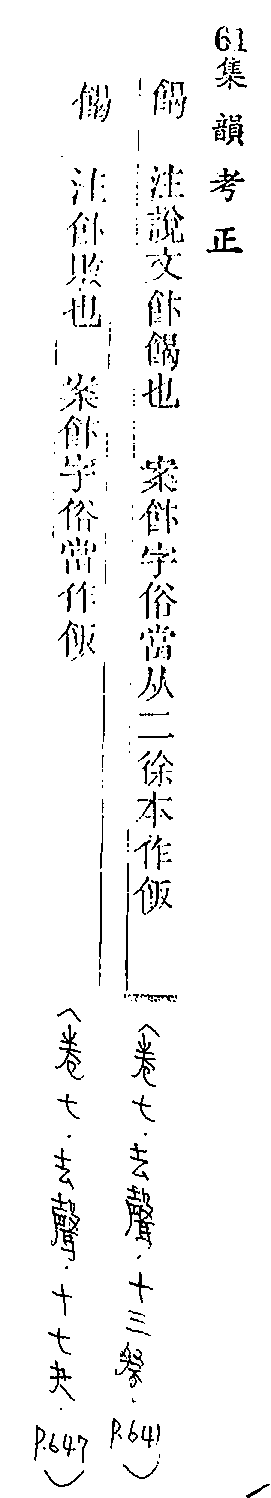 61集韻考正
餲 注說文飰餲也 案飰字俗當从二徐本作飯 (卷七.去聲.十三祭.P.641)
餲 注飰敗也 案飰字俗當作飯 (卷七.去聲.十七夬.P.647)